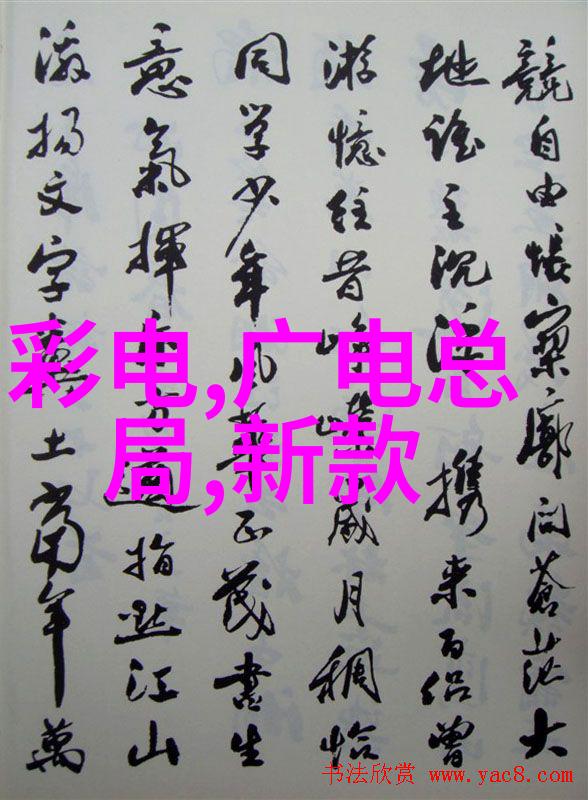 競自由悵寥廓问蒼茫大
地谁主沉浮携来百侣曾
游憶往昔峥嵘歲月稠恰
同学少年风華正茂書生
意氣揮斥方遒指点江山
激揚文字糞土當年萬
彩电,广电总
局,新款
书法欣赏 www.yac8.com